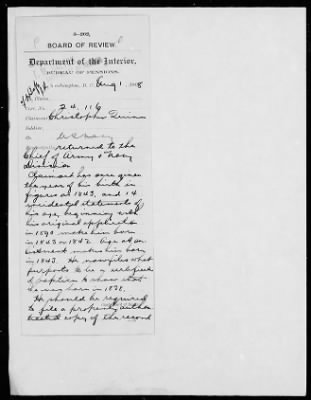 3-202.
BOARD OF REVIEW.
Department of the Interior,
BUREAU OF PENSIONS,
Washington, D. C., Aug 1, 1908
No. 24.116
Claimant Christopher Quinn
Soldier,
Co. U S Navy
Respectfully returned to the
Chief of Army & Navy
Division
Claimant has once given
the year of his birth in
figures as 1843, and 14
incidental statements of
his age, beginning with
his original application
in 1890 make him born
in 1843 or 1842. Age at en-
listment makes him born
in 1843. He now files what
purports to be a certificate
of baptism to show that
he was born in 1838.
He should be required
to file a properly authen-
ticated copy of the record